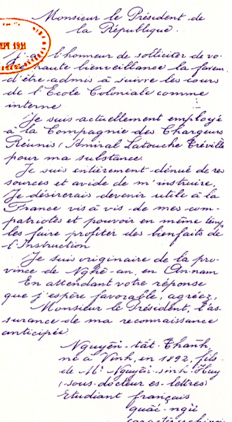 Monsieur le Président de
la République.
l'honneur de solliciter de vo
haute bienveillance la faveur
d'être admis à suivre les cours
de l'Ecole Coloniale comme
interne
Je suis actuellement employé
à la Compagnie des Chargeurs
Réunis, Amiral Latouche Tréville
pour ma substance
Je suis entièrement dénué de res
sources et avide de m'instruire.
Je désirerais devenir utile à la
France vis à vis de mes com
patriotes et pouvoir en même temps
les faire profiter des bienfaits de
l'Instruction
Je suis originaire de la pro
vince de Nghê-an, en Annam
En attendant votre réponse
que j'espère favorable, agréez,
Monsieur le Président, l'as
surance de ma reconnaissance
anticipée
Nguyên-tât-Thanh,
né à Vinh, en 1892, fils
de Mr Nguyên-sinh-Huy
(sous-docteur ès-lettres)
Etudiant français
quôc-ngu